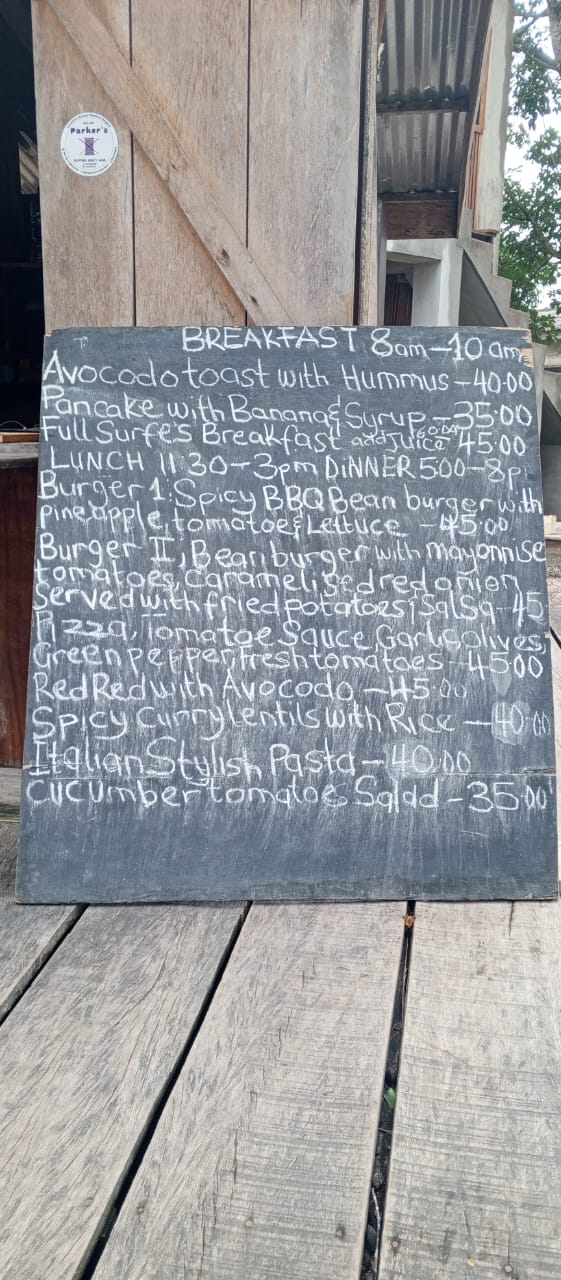 Parker's
BREAKFAST 8am-10am
Avocodo toast with Hummus-40.00
Pancake with Banana & Syrup-35:00
Full Surfes Breakfast add Juice 45.00
LUNCH 11:30-3pm DiNNER 500-8p
Burger 1: Spicy BBQ Bean burger with
pineapple, tomatoe & Lettuce -45.00
Burger II, Bean burger with mayonnise
tomatoes, Caramelised red onion
Served with fried potatoes & SalSa-45
Pizza, Tomatoe Sauce, Garlic olives,
Green pepper, fresh tomatoes -45.00
Red Red with Avocodo -45.00
Spicy Curry lentils with Rice -40.00
Italian Stylish Pasta -40.00
Cucumber tomatoe Salad -35.00